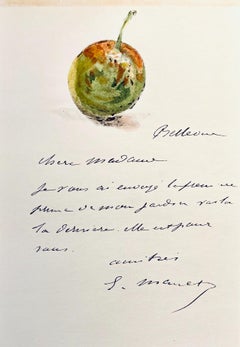 Bellevue
chere Madame
Je vous ai envoyé la
prune de mon jardin
la derniere. elle est pour
vous.
amitiés
E. Manet